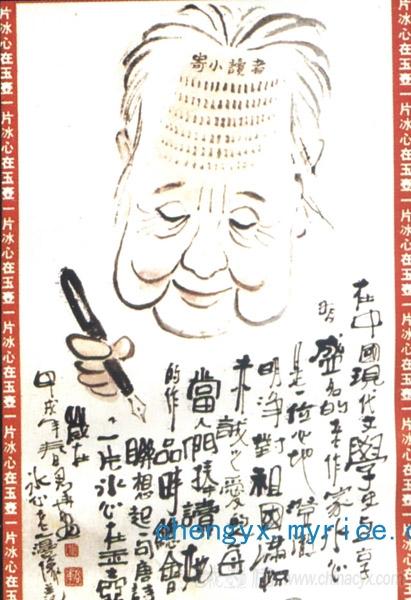 寄小讀者
在中國現代文學史上享
盛名的老作家冰心
是一位心地
明淨對祖國滿懷
赤誠之愛的母
當人們拜讀她
的作品時總會
聯想起一句唐詩
一片冰心在玉壺
歲在
甲戌年春日
片冰心在玉壺一片冰心在玉壺一片冰心在玉壺一片冰心在玉壺
片冰心在玉壺一片冰心在玉壺一片冰心在玉壺一片冰心在玉壺
chengyx.myrice.c
www.chinacyx.com